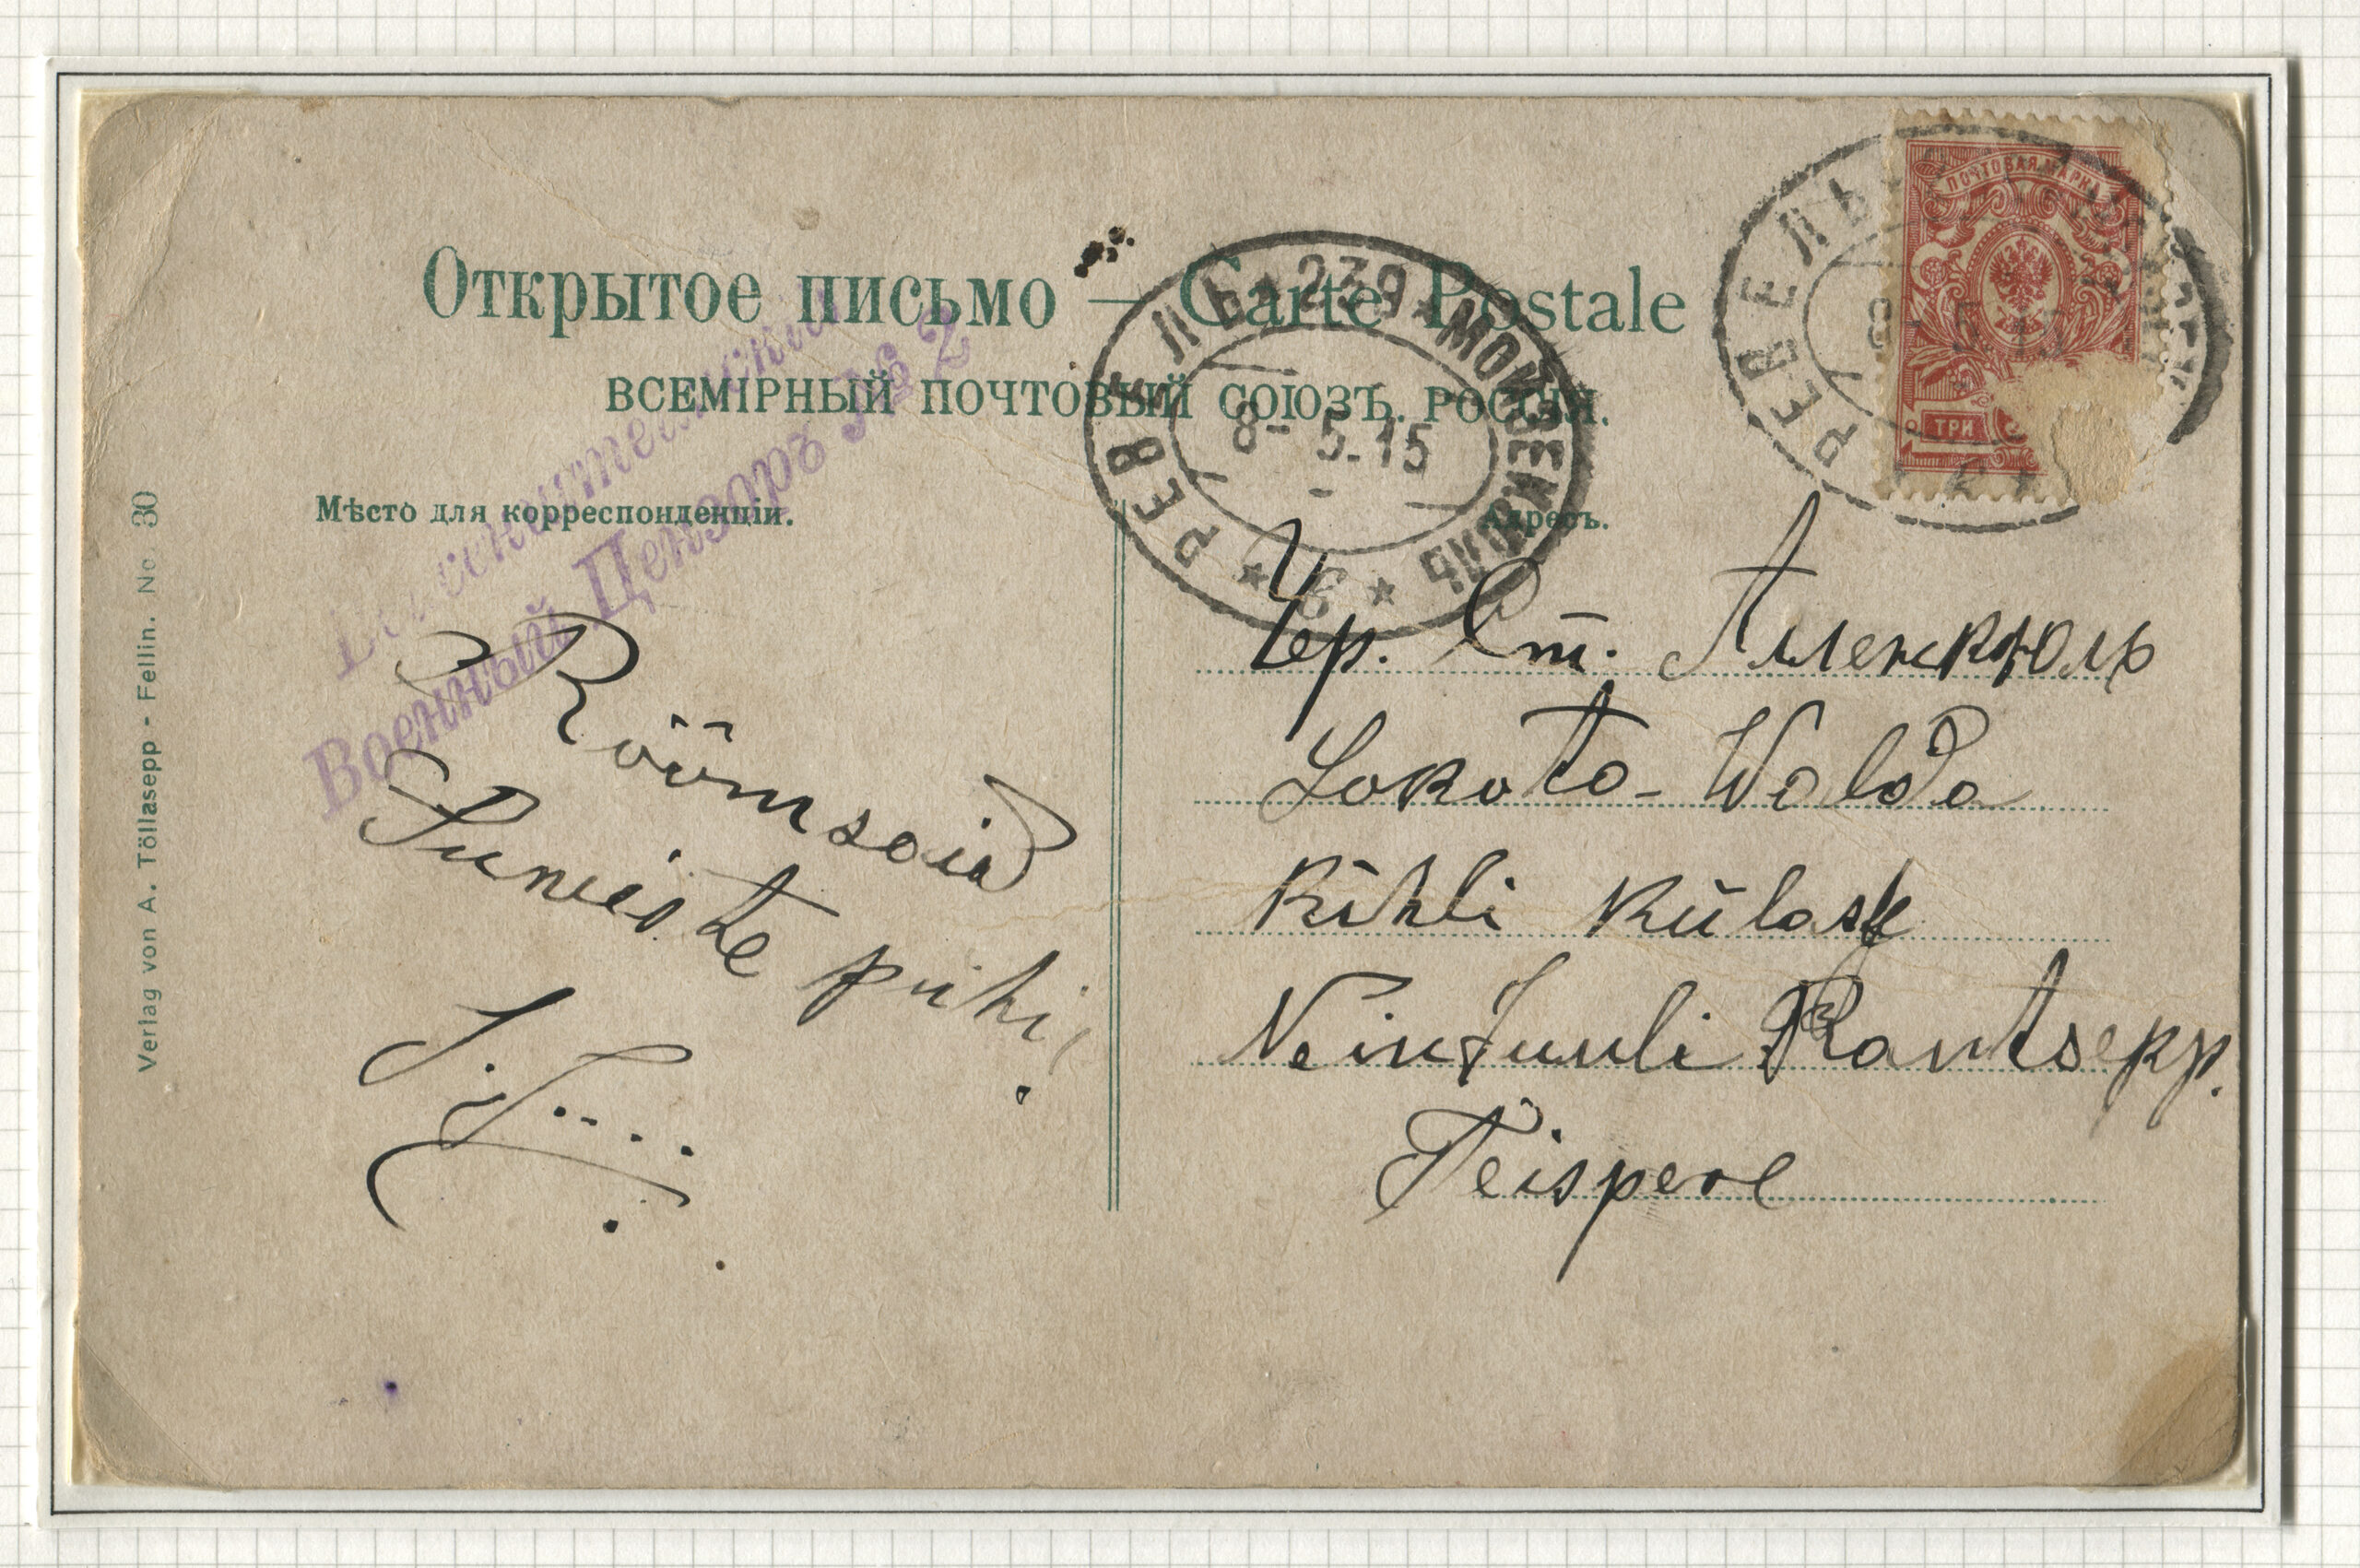 Открытое письмо — Carte Postale
ВСЕМІРНЫЙ ПОЧТОВЫЙ СОЮЗЪ. РОССІЯ.
Мѣсто для корреспонденціи.
Адресъ.
Verlag von A. Töllasepp - Fellin. No 30
Военный Цензоръ № 2
РЕВЕЛЬ * 239 * МОИЗЕКЮЛЬ
8-5-15
* 3 *
РЕВЕЛЬ
8-5-15
ПОЧТОВАЯ МАРКА
ТРИ
Rõõmsaid
Suwiste pühi!
Чер. Ст. Алленкюль
Lokota-Walda
Külast
Neiu Juuli Rantsepp.
Teispere